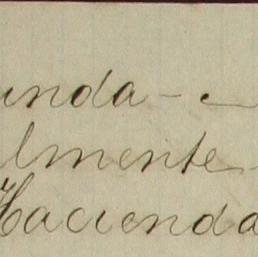 unda - e
lmente
Hacienda